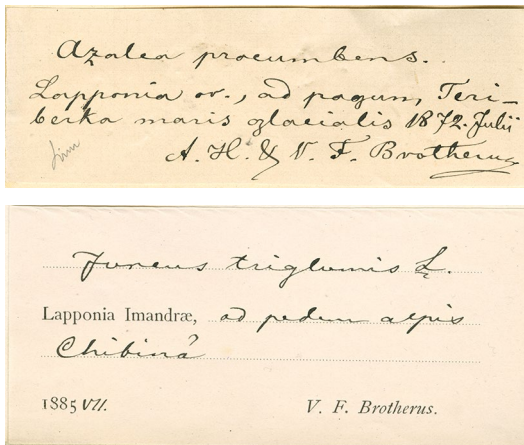 Azalea procumbens.
Lapponia or., ad pagum, Teri-
berka maris glacialis 1872. Julii
Linn
A. H. & V. F. Brotherus
Juncus triglumis L.
Lapponia Imandræ, ad pedem alpis
Chibinä
1885 VII.
V. F. Brotherus.